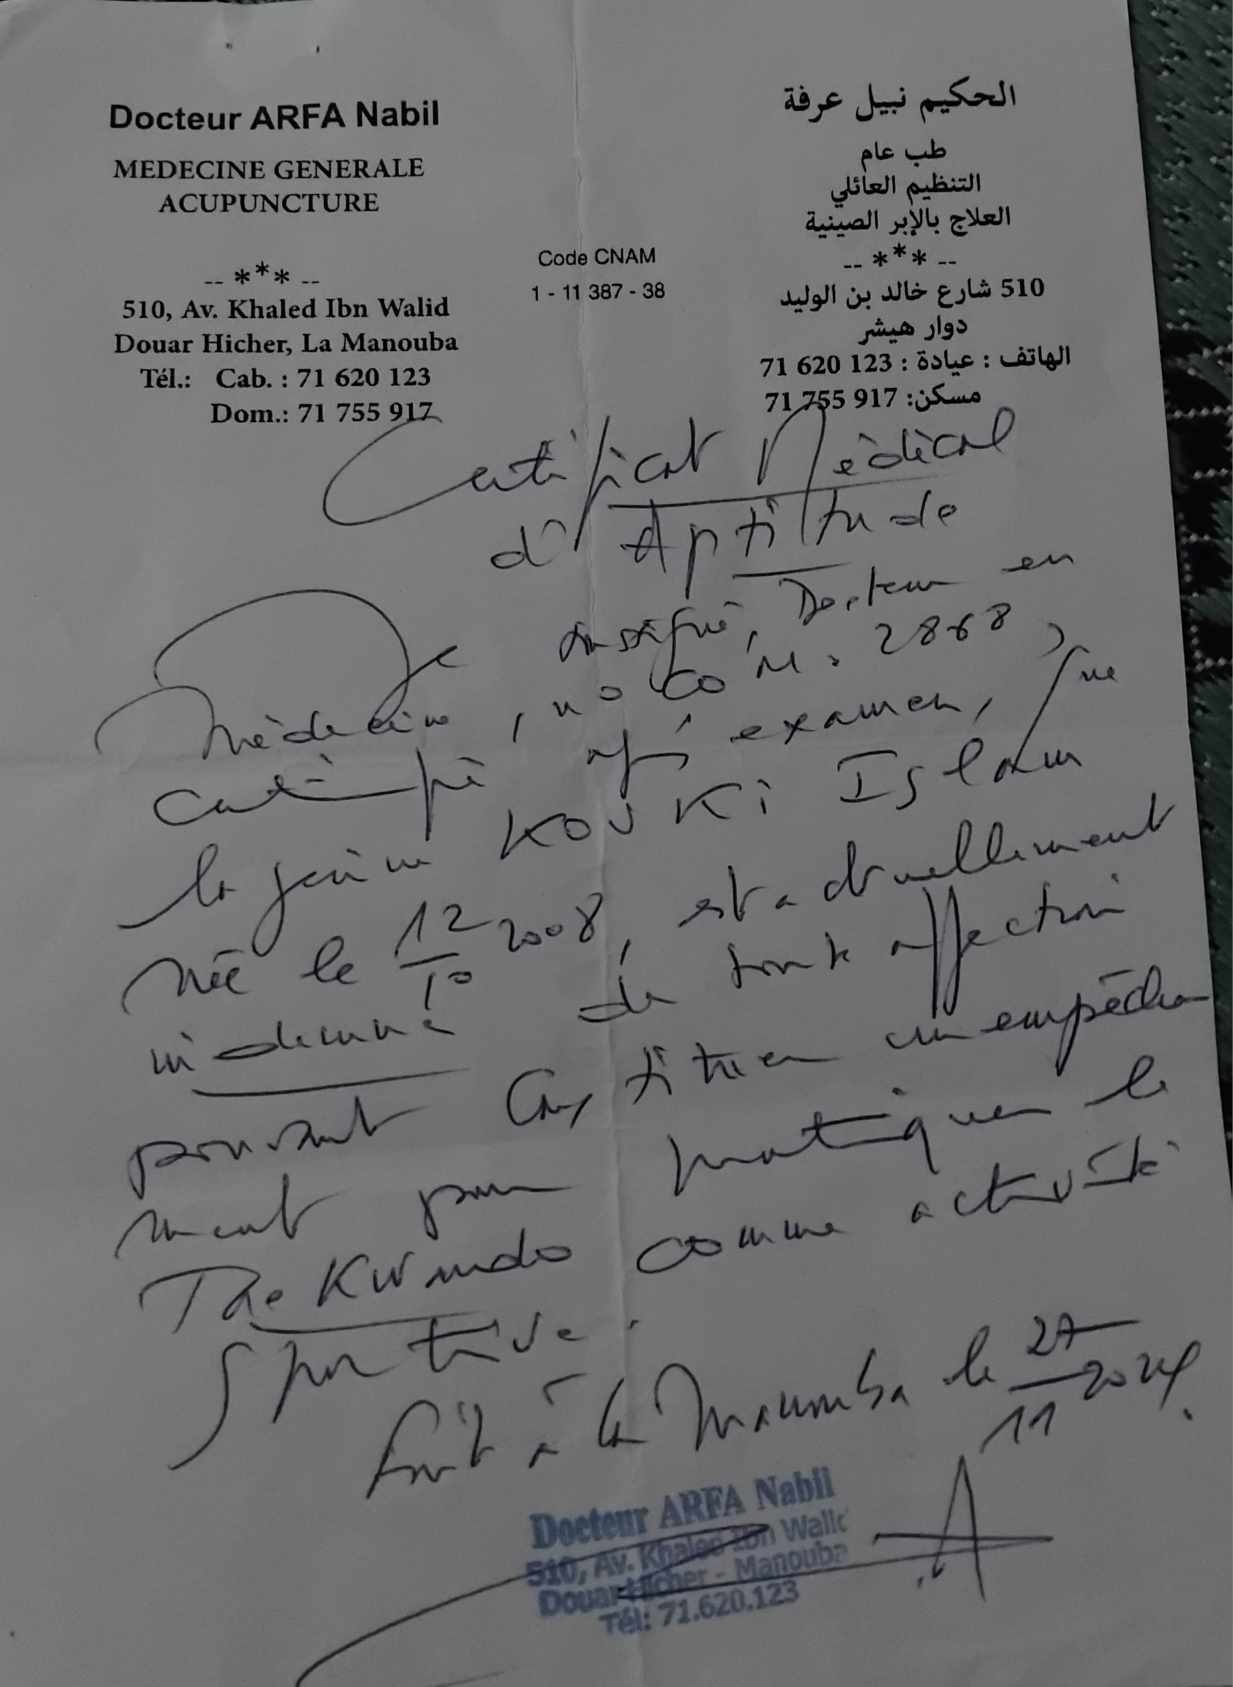 Docteur ARFA Nabil
MEDECINE GENERALE
ACUPUNCTURE
-- *** --
510, Av. Khaled Ibn Walid
Douar Hicher, La Manouba
Tél.: Cab. : 71 620 123
Dom.: 71 755 917
Code CNAM
1 - 11 387 - 38
الحكيم نبيل عرفة
طب عام
التنظيم العائلي
العلاج بالإبر الصينية
-- *** --
510 شارع خالد بن الوليد
دوار هيشر
الهاتف : عيادة : 123 620 71
مسكن: 917 755 71
Certificat Médical
d'Aptitude
Je soussigné, Docteur en
Médecine, no 2868,
certifie après examen, que
la jeune KOUKI Islam
née le 12/10 2008, est actuellement
indemne de toute affection
pouvant constituer un empêche
ment pour pratiquer le
TaeKwondo comme activité
sportive.
fait à la Manouba le 27/11 2024.
Docteur ARFA Nabil
510, Av. Khaled Ibn Walid
Douar Hicher - Manouba
Tél: 71.620.123